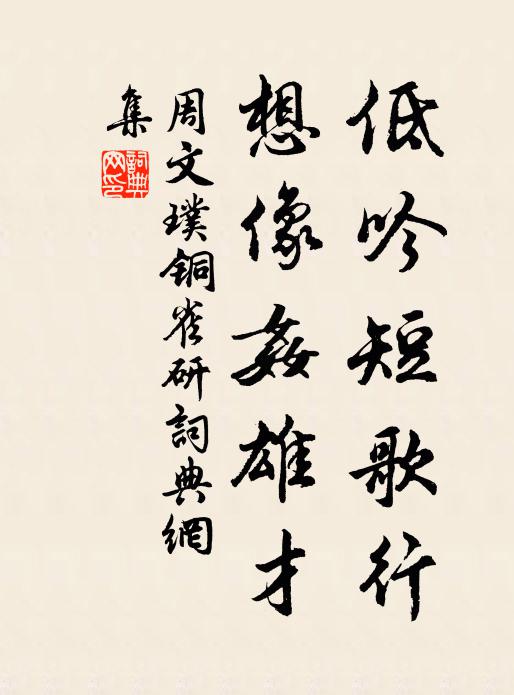 低吟短歌行
想像姦雄才
周文璞銅雀研詞典網
集
詞典
网印